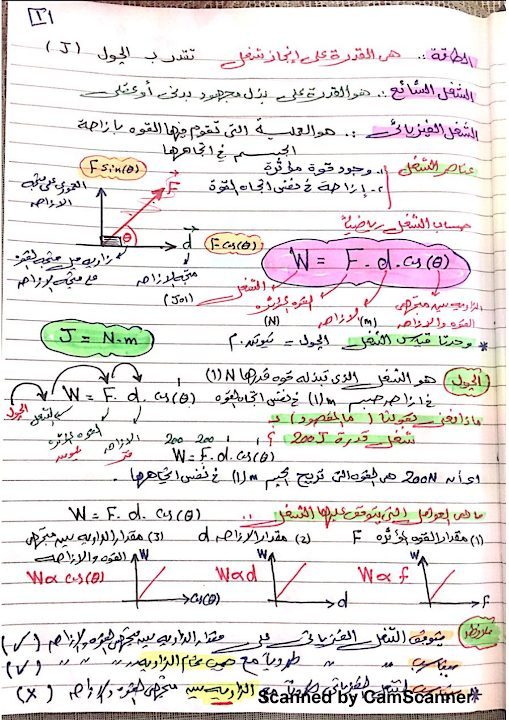 ٢١
الطاقة :. هى القدرة على إنجاز شغل تقدر ب الجول (J)
الشغل الشائع :. هو القدرة على بذل مجهود بدنى أو عقلى
الشغل الفيزيائى :. هو العملية التى تقوم فيها القوه بإزاحة
الجسم فى اتجاهها
عناصر الشغل
١- وجود قوة مؤثرة
٢- إزاحة فى نفس اتجاه القوة
F sin(θ)
F
θ
d
F cos(θ)
حساب الشغل رياضياً
W = F. d. cos(θ)
الشغل
(Joul)
القوه المؤثره
(N)
الازاحه
(m)
الزاويه بين متجهى
القوه والازاحه
متجه الازاحه
J = N.m
* وحدة قياس الشغل الجول = نيوتن.م
الجول هو الشغل الذى تبذله قوه قدرها (1) N
فى ازاحة جسم (1) m فى نفس اتجاه القوه
W = F. d. cos(θ)
الجول
الشغل
القوه المؤثره
نيوتن
الازاحه
متر
ماذا نعنى بقولنا ( ما المقصود ) بـ
شغل قدرة 200J ؟
200 200 1 1
W = F. d. cos(θ)
اى أن 200N هى القوه التى تزيح الجسم (1) m فى نفس اتجاهها .
ما هى العوامل التى يتوقف عليها الشغل ..
W = F. d. cos(θ)
(1) مقدار القوه المؤثره F (2) مقدار الازاحه d (3) مقدار الزاويه بين متجهى
القوه والازاحه
W α cos(θ) W cos(θ)
W α d W d
W α f W F
ملاحظه
يتوقف الشغل الفيزيائى على مقدار الزاويه بين متجهى القوه والازاحه (✓)
يتناسب " " طرديا مع جيب تمام الزاويه " " " (✓)
الزاويه بين متجهى القوه والازاحه (X)
Scanned by CamScanner